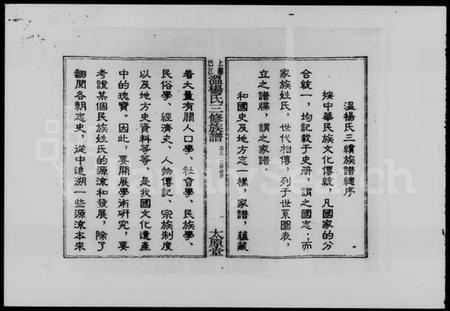 溫楊氏三續族譜總序
按中華民族文化傳統，凡國家的分
合統一，均記載于史冊，謂之國志；而
家族姓氏，世代相傳，列于世系圖表，
立之譜牒，謂之家譜
和國史及地方志一樣，家譜，蘊藏
溫楊氏三修族譜
太原堂
着大量有關人口學、社會學、民族學、
民俗學、經濟史、人物傳記、宗族制度
以及地方史資料等等，是我國文化遺產
中的瑰寶。因此，要開展學術研究，要
考證某個民族姓氏的源流和發展，除了
翻閱各朝志史，從中追溯一些源流本來